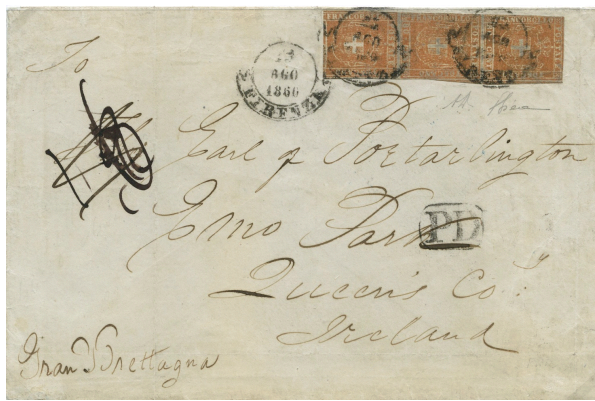 FRANCOBOLLO
FRANCOBOLLO
FRANCOBOLLO
13
AGO
1860
FIRENZE
To
The Earl of Portarlington
Emo Park
PD
Queen's Co:
Ireland
Gran Brettagna